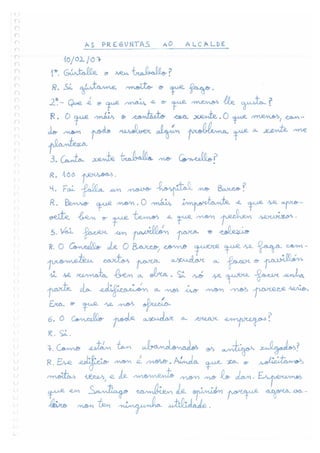 AS PREGUNTAS AO ALCALDE
10/02/07
1ª. Gústalle o seu traballo?
R. Si gústame moito o que fago.
2ª.- Que é o que máis e o que menos lle gusta?
R. O que máis o contacto coa xente. O que menos, can-
do non podo resolver algún problema que a xente me
plantexa.
3. Canta xente traballa no Concello?
R. 100 persoas.
4. Fai falla un novo hospital no Barco?
R. Penso que non. O máis importante é que se apro-
veite ben o que temos e que non pechen servizos.
5. Vai facer un pavillón para o colexio
R. O Concello de O Barco, como quere que se faga com-
prometeu cartos para axudar a facer o pavillón
si se remata ben a obra. Si só se quere facer unha
parte da edificación a nos iso non nos parece serio,
Era o que se nos ofrecía.
6. O Concello pode axudar a crear empregos?
R. Si.
7. Como están tan abandonados os antigos xulgados?
R. Ese edificio non é noso. Ainda que xa o solicitamos
moitas veces, e de momento non no lo dan. Esperemos
que en Santiago cambien de opinión porque agora va-
leiro non ten ningunha utilidade.